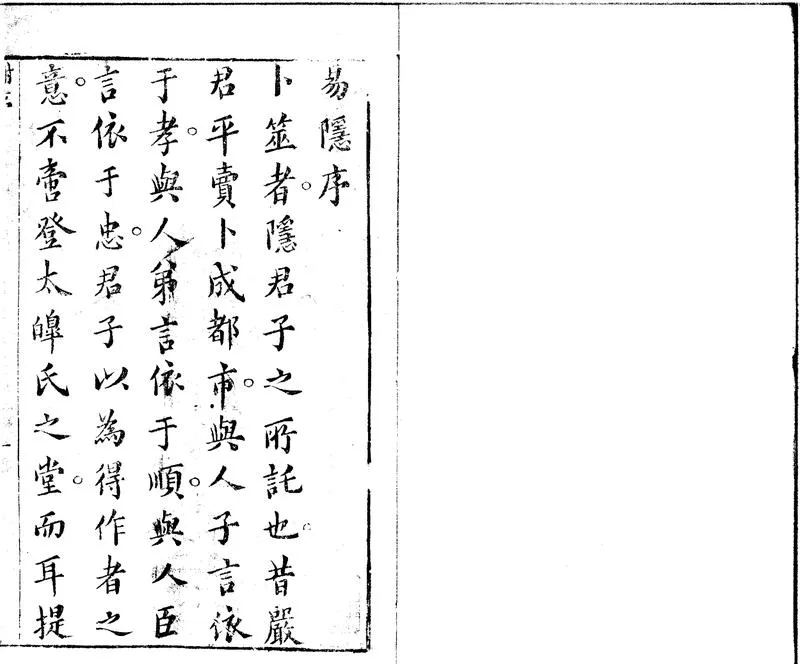 易隱序
卜筮者。隱君子之所託也。昔嚴
君平賣卜成都市。與人子言依
于孝。與人弟言依于順。與人臣
言依于忠。君子以為得作者之
意。不啻登太皞氏之堂。而耳提